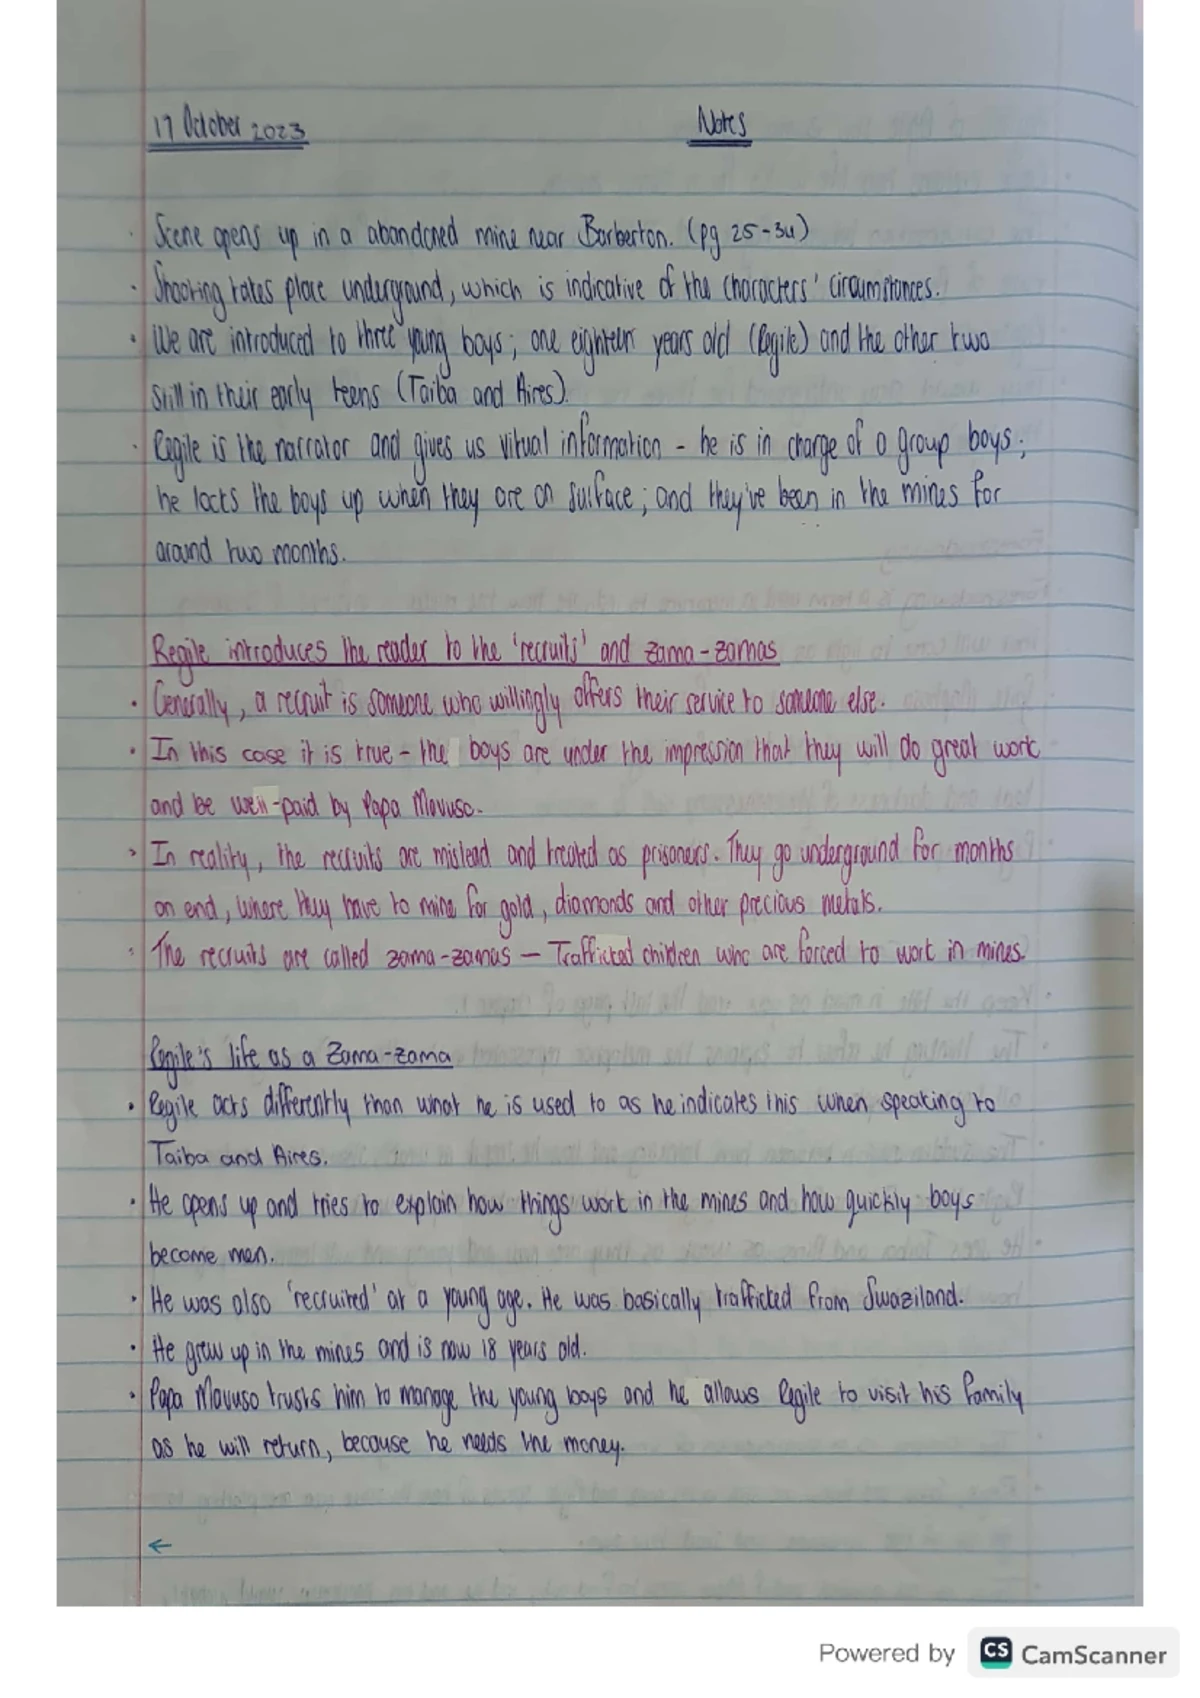 17 October 2023
Notes
· Scene opens up in a abandoned mine near Barberton. (pg 25-34)
· Shooting takes place underground, which is indicative of the characters' circumstances.
· We are introduced to three young boys; one eighteen years old (Regile) and the other two
still in their early teens (Taiba and Aires).
· Regile is the narrator and gives us vitual information - he is in charge of a group boys;
he locks the boys up when they are on surface; and they've been in the mines for
around two months.
Regile introduces the reader to the 'recruits' and zama-zamas
· Generally, a recruit is someone who willingly offers their service to someone else.
· In this case it is true - the boys are under the impression that they will do great work
and be well-paid by Papa Mavuso.
· In reality, the recruits are mislead and treated as prisoners. They go underground for months
on end, where they have to mine for gold, diamonds and other precious metals.
· The recruits are called zama-zamas — Trafficked children who are forced to work in mines.
Regile's life as a Zama-zama
· Regile acts differently than what he is used to as he indicates this when speaking to
Taiba and Aires.
· He opens up and tries to explain how things work in the mines and how quickly boys
become men.
· He was also 'recruited' at a young age. He was basically trafficked from Swaziland.
· He grew up in the mines and is now 18 years old.
· Papa Mavuso trusts him to manage the young boys and he allows Regile to visit his family
as he will return, because he needs the money.
←
Powered by CS CamScanner